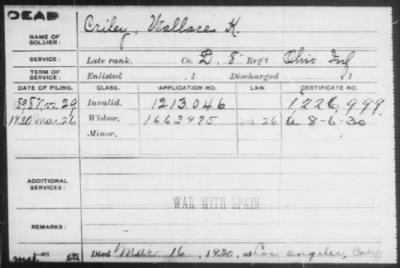 DEAD
NAME OF SOLDIER: Criley, Wallace K.
SERVICE: Late rank, Co. D. 8 Reg't Ohio Inf
TERM OF SERVICE: Enlisted , 1 Discharged , 1
DATE OF FILING. CLASS. APPLICATION NO. LAW. CERTIFICATE NO.
1898 Nov. 29 Invalid, 1213046 1,226,999
1930 Mar 26 Widow, 1663495 26 a 8-6-30
Minor,
ADDITIONAL SERVICES:
WAR WITH SPAIN
REMARKS:
Died Mar 16, 1930, at Los Angeles, Calif